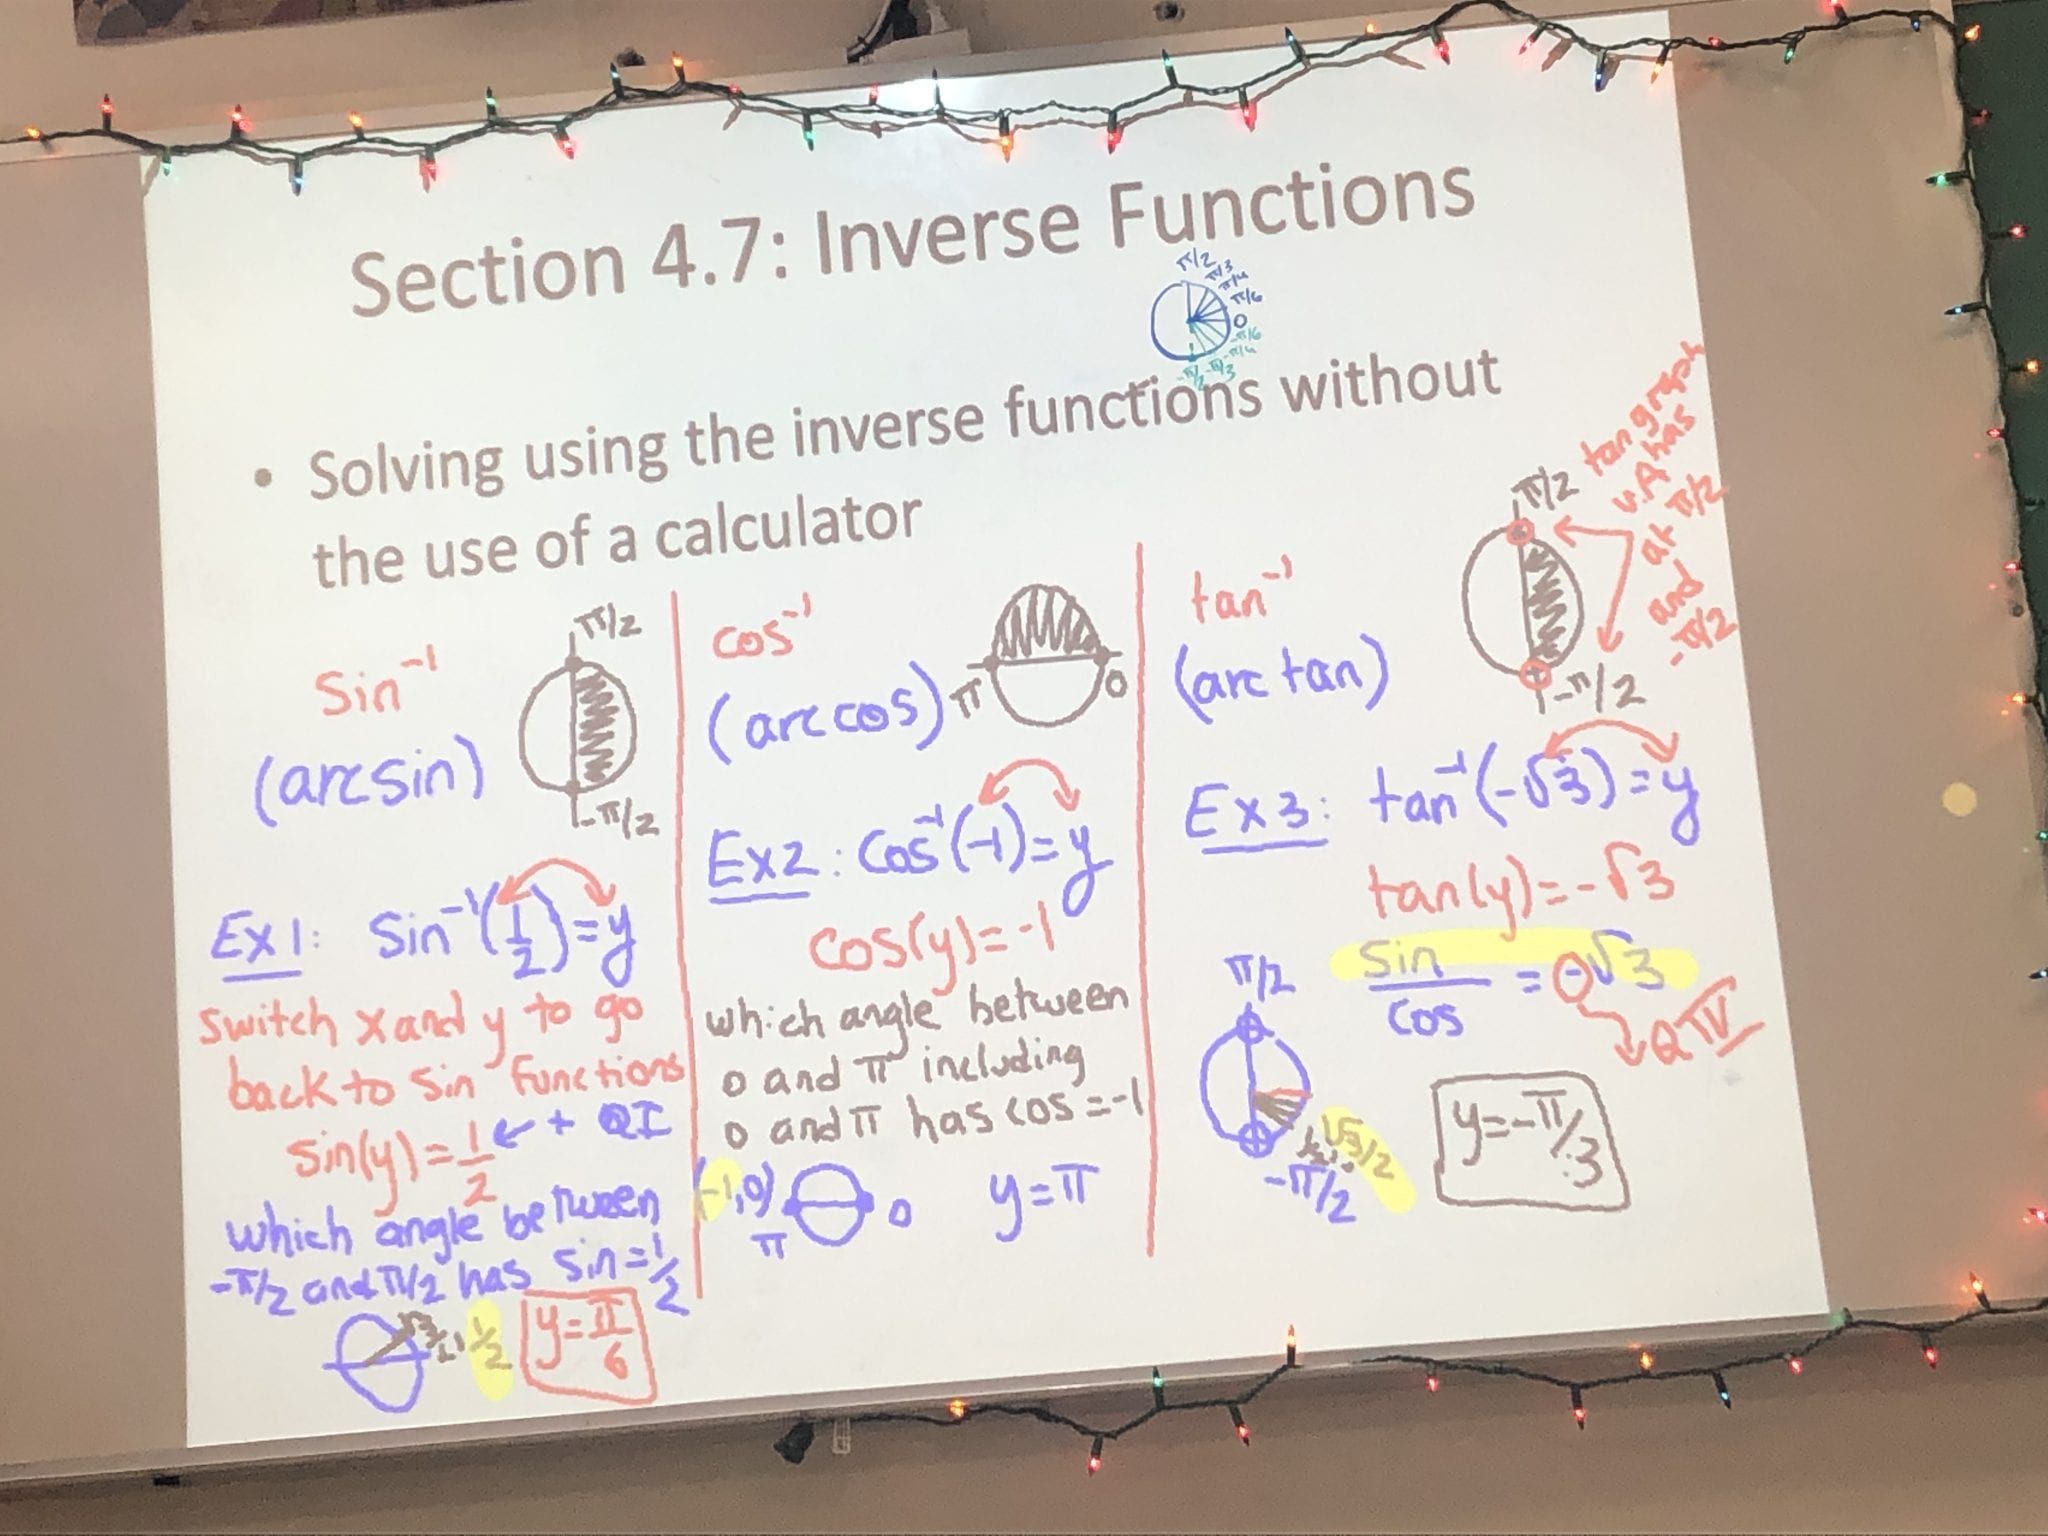 Section 4.7: Inverse Functions
π/2
π/3
π/4
π/6
0
-π/6
-π/4
-π/3
-π/2
• Solving using the inverse functions without
the use of a calculator
sin⁻¹
(arcsin)
π/2
-π/2
Ex1: sin⁻¹(1/2)=y
switch x and y to go
back to sin functions
sin(y)=1/2 ← + QI
which angle between
-π/2 and π/2 has sin=1/2
√3/2, 1/2
y=π/6
cos⁻¹
(arccos)
π
0
Ex2: cos⁻¹(-1)=y
cos(y)=-1
which angle between
0 and π including
0 and π has cos=-1
(-1,0)
π
0
y=π
tan⁻¹
(arctan)
π/2
-π/2
tan graph
has
V.A
at π/2
and
-π/2
Ex3: tan⁻¹(-√3)=y
tan(y)=-√3
sin/cos = -√3
QIV
π/2
-π/2
y=-π/3